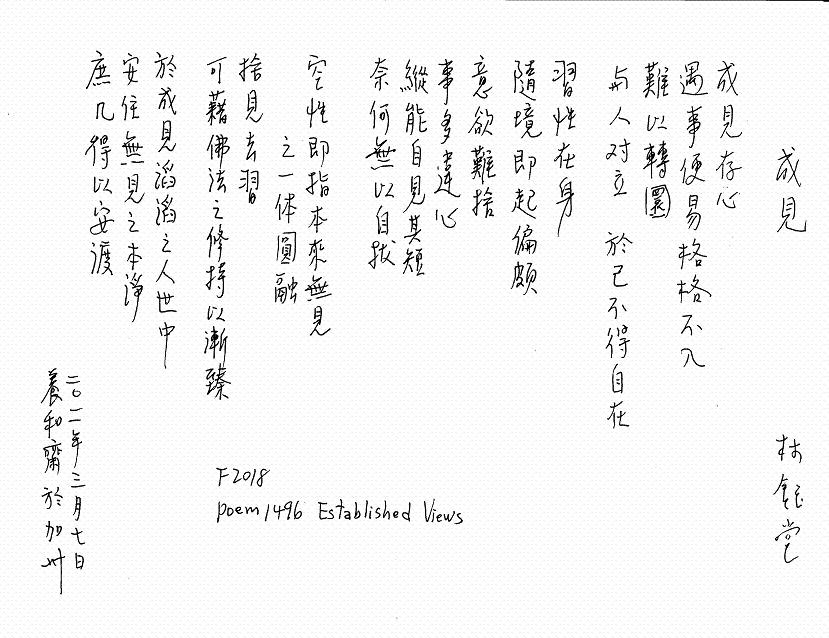 成見
林鈺堂
成見存心
遇事便易格格不入
難以轉圜
与人対立　於己不得自在
習性在身
隨境即起偏頗
意欲難捨
事多違心
縱能自見其短
奈何無以自拔
空性即指本來無見
之一体圓融
捨見去習
可藉佛法之修持以漸臻
於成見滔滔之人世中
安住無見之本淨
庶几得以安渡
二〇一一年三月七日
養和齋於加州
F2018
Poem 1496 Established Views